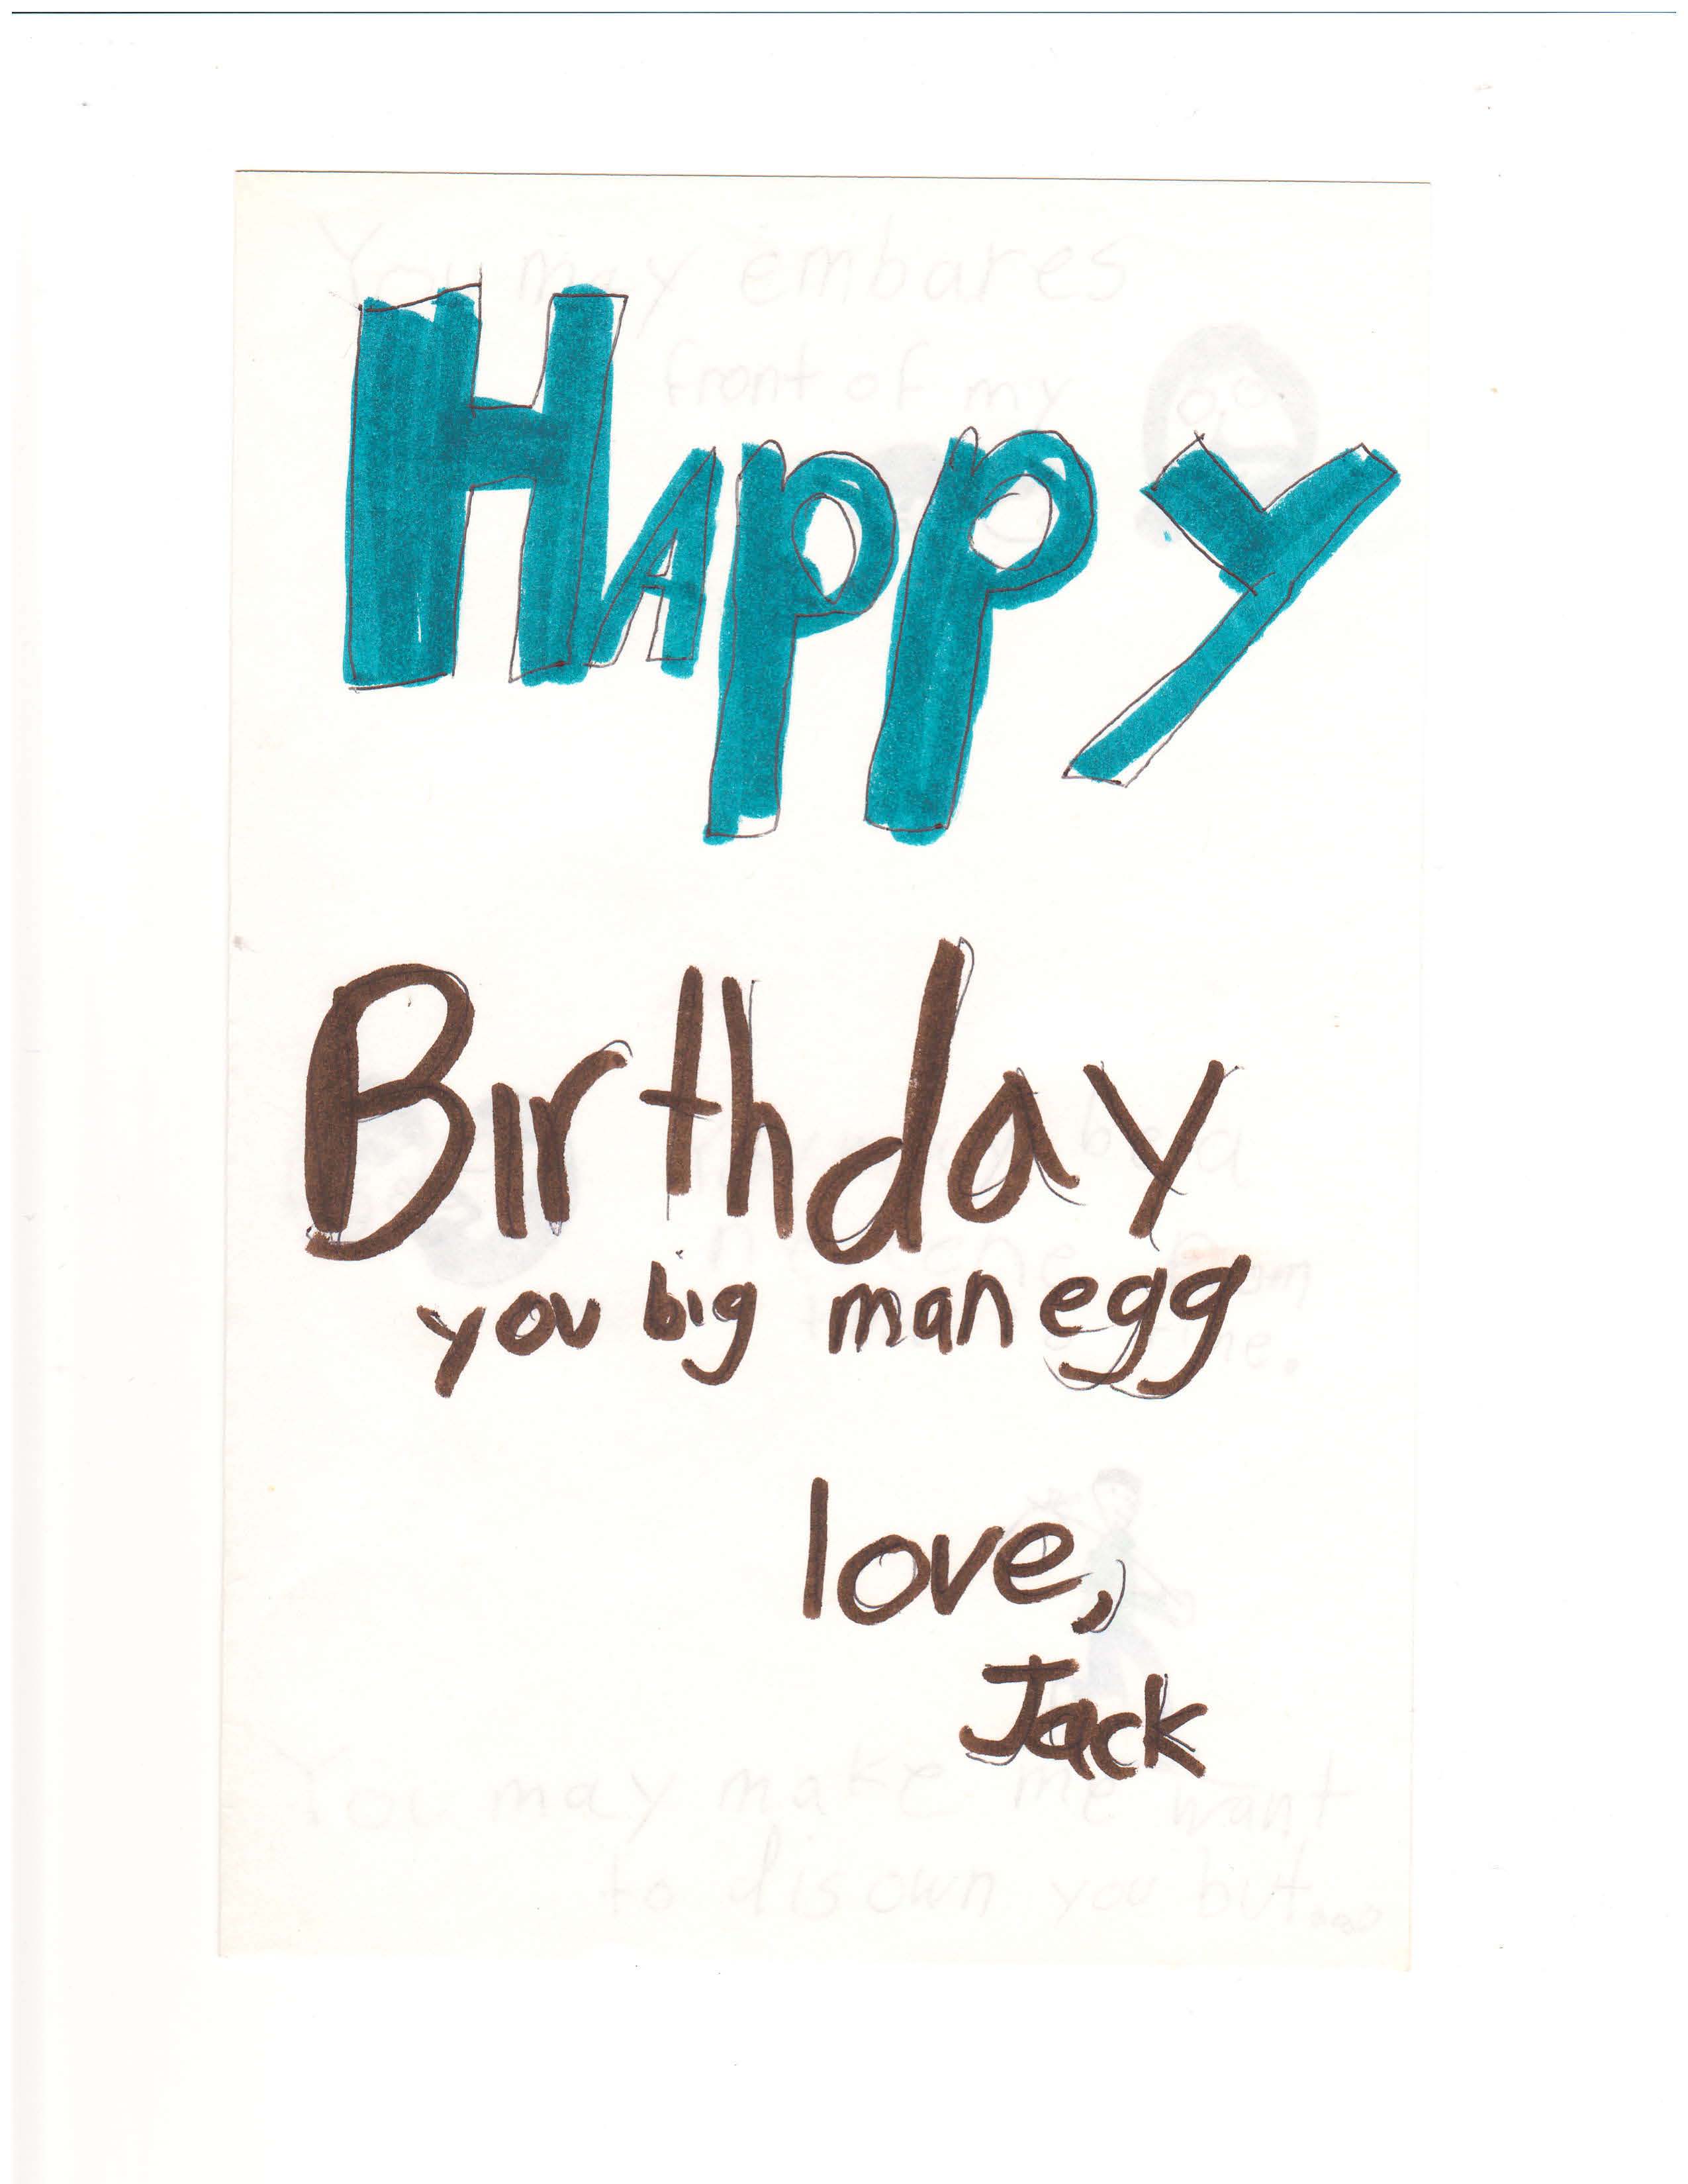 You may embares
front of my
HAppy
Birthday
you big man egg
love,
Jack
You may make me want
to disown you but....